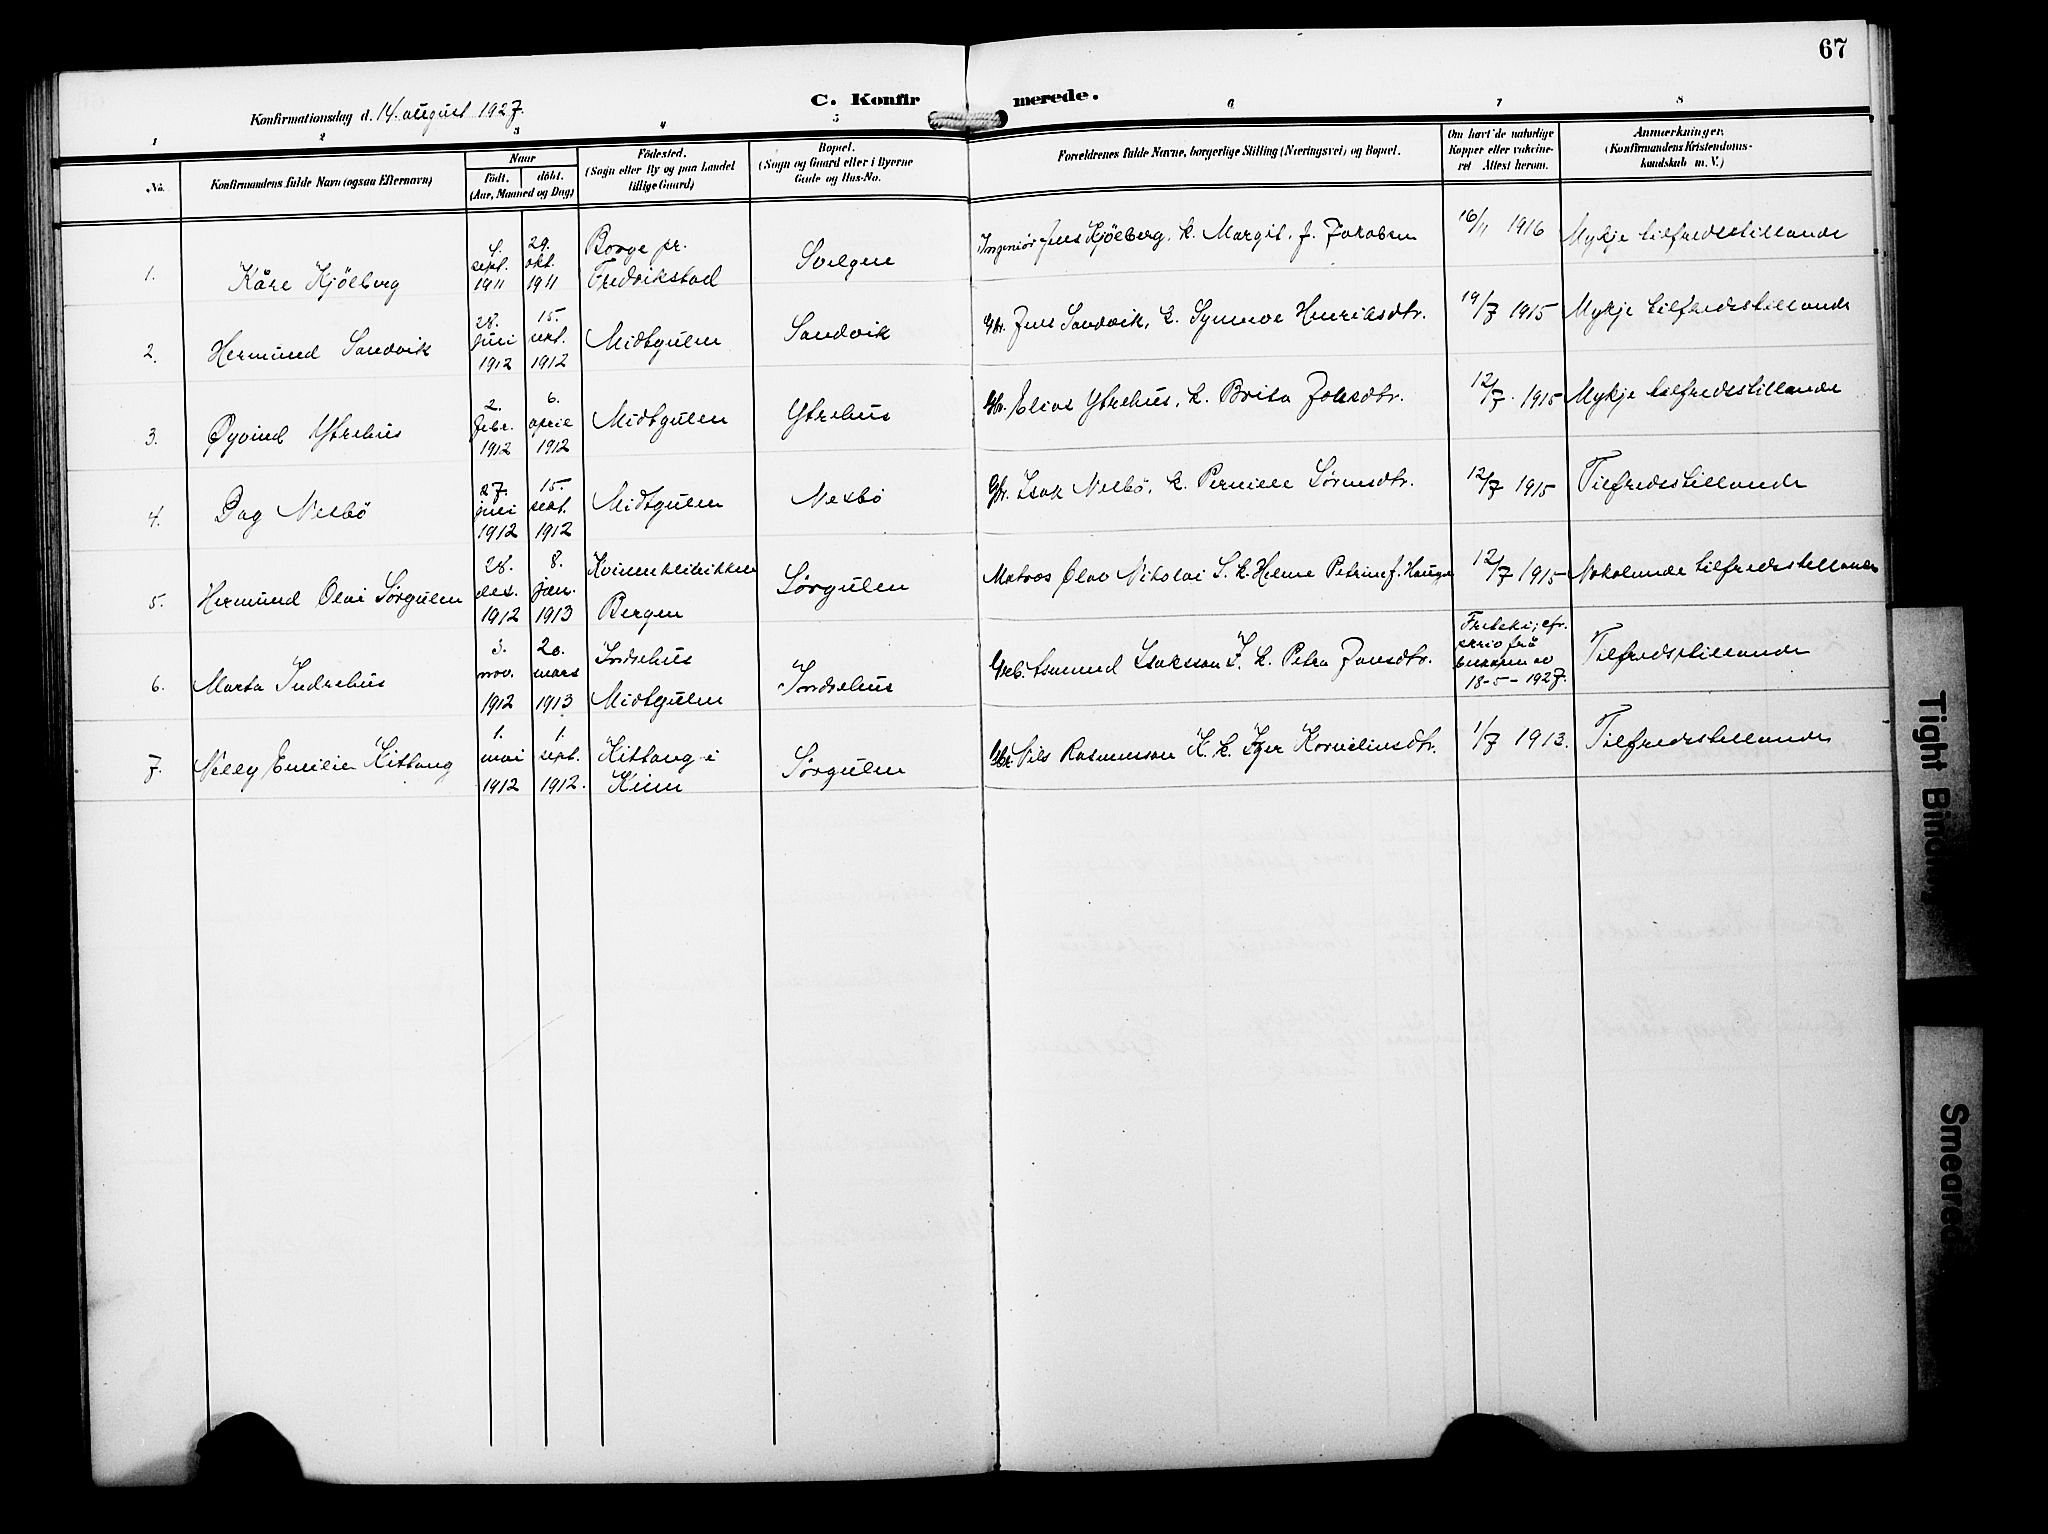 67
C. Konfirmerede.
Konfirmationsdag d. 14. august 1927.
1 2 3 4 5 6 7 8
No.
Konfirmandens fulde Navn (ogsaa Efternavn)
Naar
født. døbt.
(Aar, Maaned og Dag)
Fødested.
(Sogn eller By og paa Landet
tillige Gaard)
Bopæl.
(Sogn og Gaard eller i Byerne
Gade og Hus-No.
Forældrenes fulde Navne, borgerlige Stilling (Næringsvei) og Bopæl.
Om havt de naturlige
Kopper eller vakcine-
ret Attest herom.
Anmærkninger.
(Konfirmandens Kristendoms-
kundskab m. V.)
1. Kåre Kjölberg
4. sept. 1911
29. okt. 1911
Borge pr.
Fredrikstad
Svelgen
Ingeniør Jens Kjölberg, k. Margit, f. Jakobsen
16/11 1916
Mykje tilfredsstillande
2. Hermund Sandvik
28. juni 1912
15. sept. 1912
Midtgulen
Sandvik
Gbr. Jens Sandvik, k. Synneve Henriksdtr.
19/7 1915
Mykje tilfredsstillande
3. Øyvind Ytrehus
2. febr. 1912
6. april 1912
Midtgulen
Ytrehus
Gbr. Elias Ytrehus, k. Brita
12/7. 1915
Mykje tilfredsstillande
4. Dag Nesbö
27. juni 1912
15. sept. 1912
Midtgulen
Nesbö
Gbr. Isak Nesbö, k. Pernille Sörensdtr.
12/7 1915
Tilfredsstillande
5. Hermund Olai Sørgulen
28. des. 1912
8. jan. 1913
Kvinneklinikken
Bergen
Sørgulen
Matros Olav Nikolai S. k. Helene Petrine f. Hauge
12/7 1915
Nokolunde tilfredsstillande
6. Marta Indrehus
3. nov. 1912
20. mars 1913
Indrehus
Midtgulen
Indrehus
Isaksson I. k. Petra Jonsdtr.
18-5-1927.
Tilfredsstillande
7. Nelly Emilie Kittang
1. mai 1912
1. sept. 1912.
Kittang i
Kinn
Sørgulen
Gbr. Nils Rasmusson K. k. Kornelinsdtr.
1/7 1913.
Tilfredsstillande
Tight Bin
Smeared